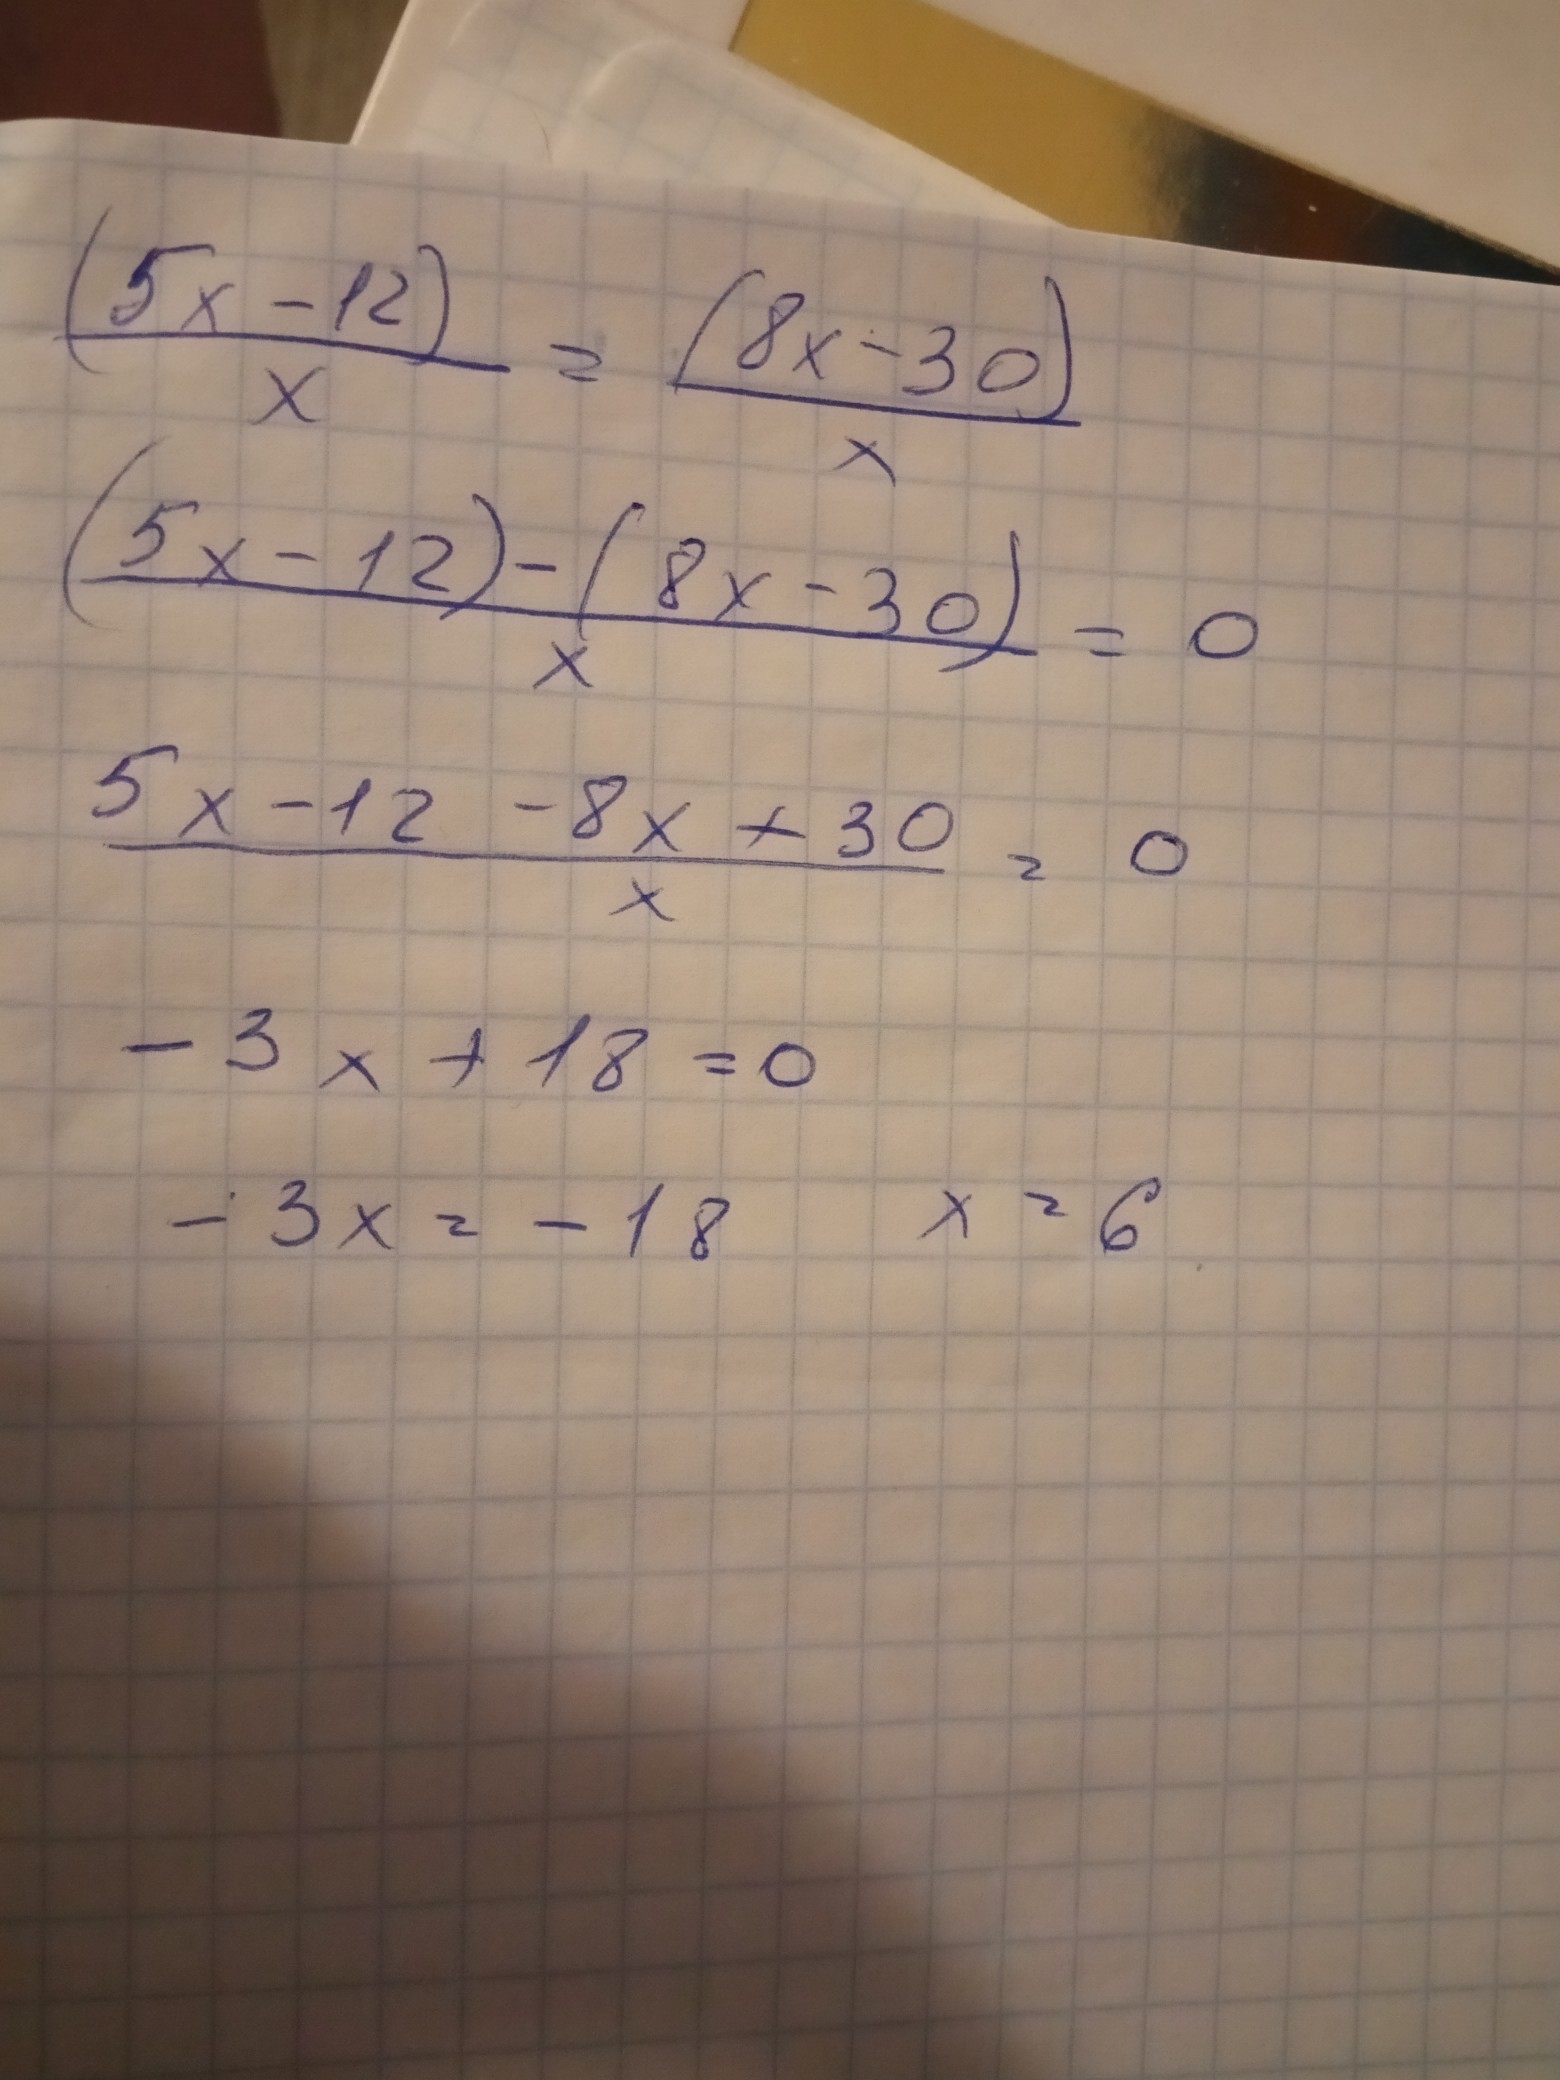 (5x-12)/x = (8x-30)/x
((5x-12)-(8x-30))/x = 0
(5x-12-8x+30)/x = 0
-3x+18=0
-3x=-18 x=6